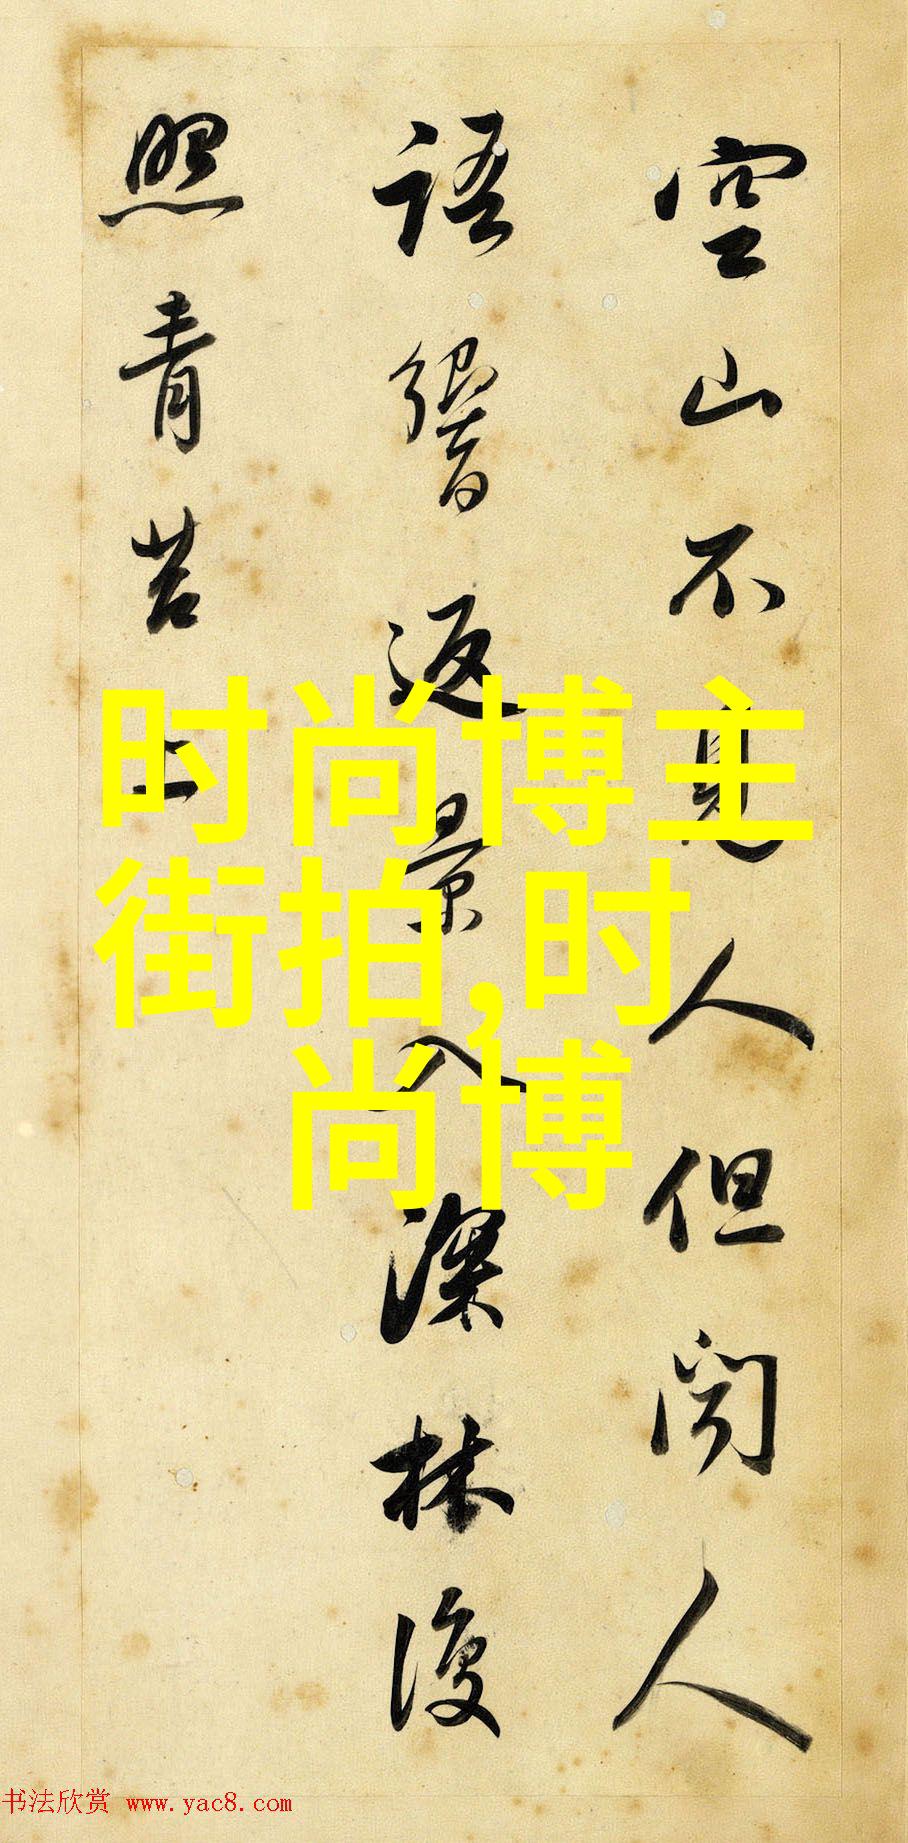 空山不見人但闻人
語響返景入深林復
照青苔上
时尚博主
街拍,时
尚博
书法欣赏 www.yac8.com